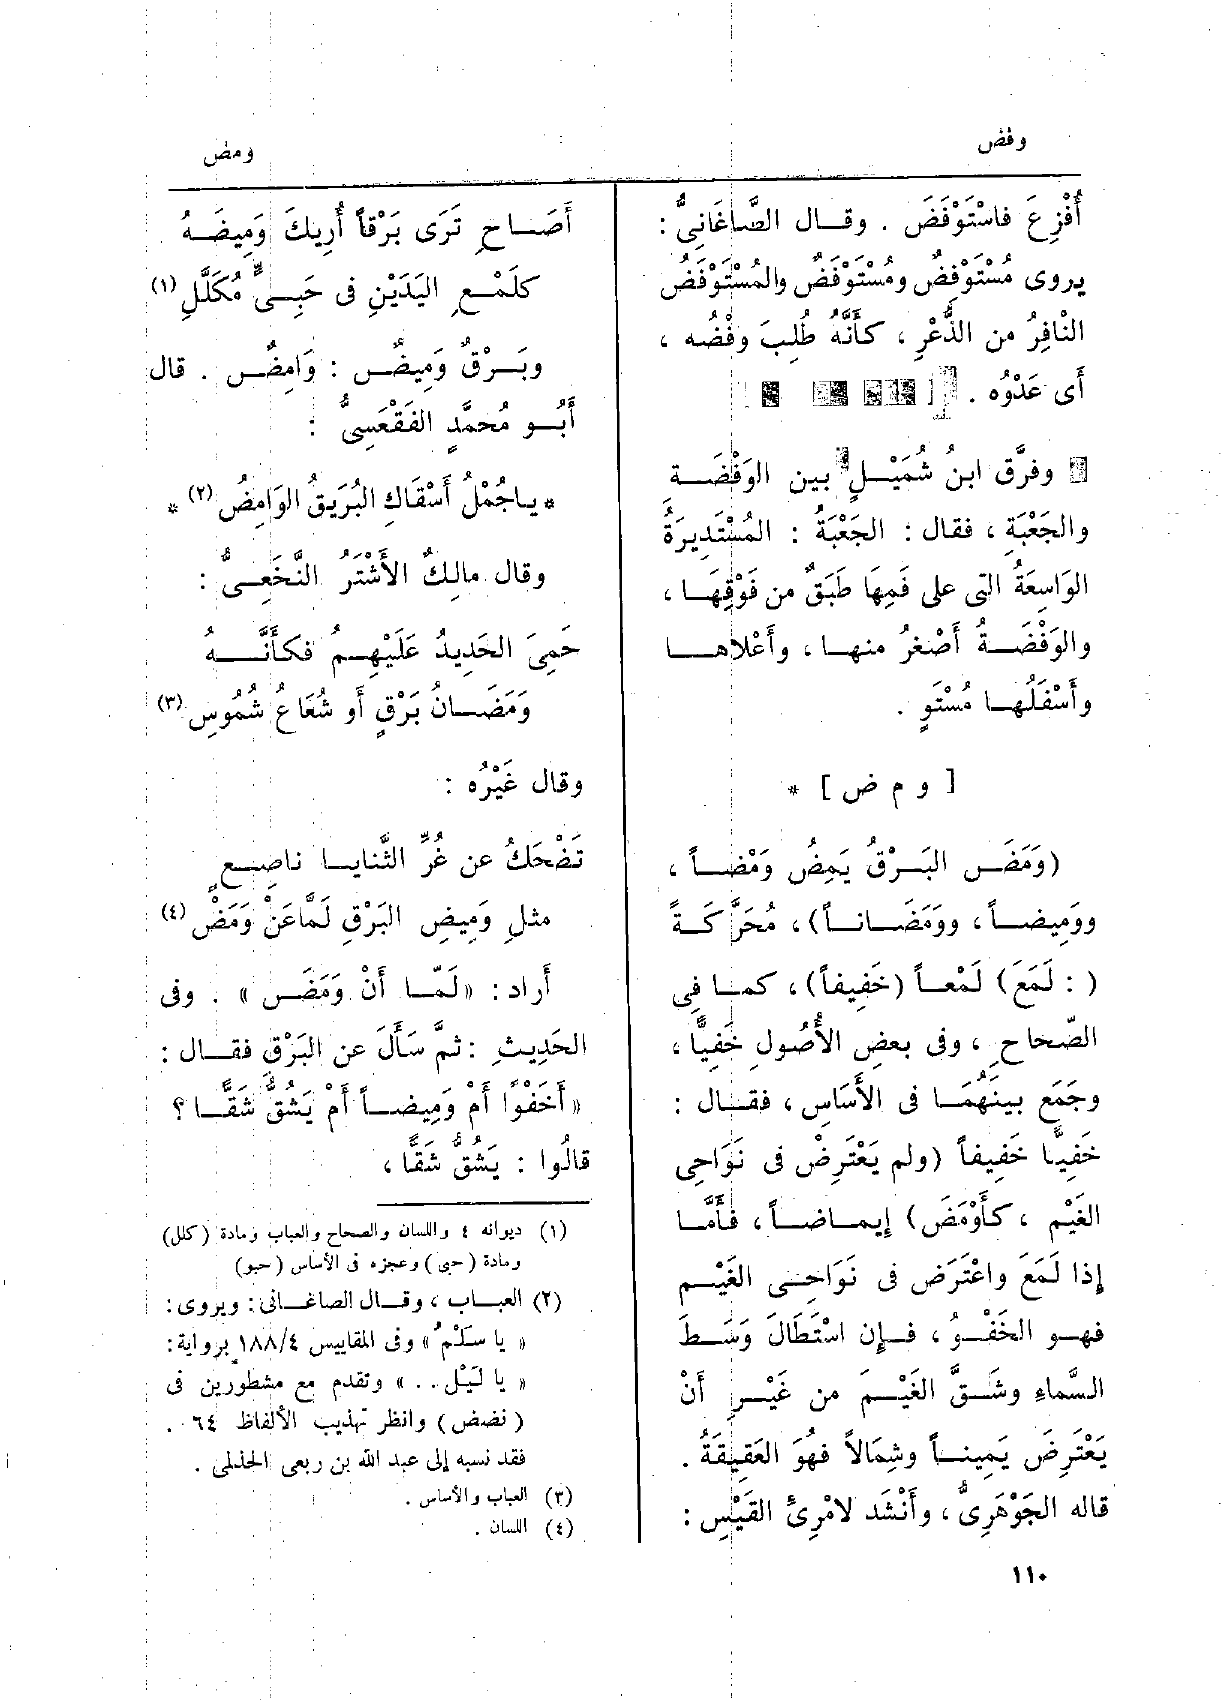 وفض
ومض
أُفْزِعَ فاسْتَوْفَضَ . وقال الصّاغَانِىُّ :
يروى مُسْتَوْفِضٌ ومُسْتَوْفَضٌ والمُسْتَوْفَضُ
النافِرُ من الذُّعْرِ ، كأَنَّهُ طُلِبَ وفْضُه ،
أى عَدْوُه .
وفرَّق ابنُ شُمَيْلٍ بين الوَفْضَةِ
والجَعْبَةِ ، فقال : الجَعْبَةُ : المُسْتَدِيرَةُ
الوَاسِعَةُ التى على فَمِهَا طَبَقٌ من فَوْقِهَا ،
والوَفْضَةُ أَصْغرُ منها ، وأَعْلاها
وأَسْفَلُها مُسْتَوٍ .
[ و م ض ] *
(وَمَضَ البَرْقُ يَمِضُ وَمْضاً ،
ووَمِيضاً ، ووَمَضَاناً) ، مُحَرَّكَةً
( : لَمَعَ) لَمْعاً (خَفِيفاً) ، كما فى
الصّحاحِ ، وفى بعضِ الأُصُولِ خَفِيًّا ،
وجَمَع بينَهُمَا فى الأَسَاسِ ، فقال :
خَفِيًّا خَفِيفاً (ولم يَعْتَرِضْ فى نَوَاحِى
الغَيْمِ ، كأَوْمَضَ) إيماضاً ، فأَمَّا
إذا لَمَعَ واعْتَرَض فى نَوَاحِى الغَيْمِ
فهو الخَفْوُ ، فإن اسْتَطَالَ وَسَطَ
السَّماءِ وشَقَّ الغَيْمَ من غَيْرِ أَنْ
يَعْتَرِضَ يَمِيناً وشِمَالاً فهُوَ العَقِيقَةُ .
قاله الجَوْهَرِىُّ ، وأَنْشَد لامْرِئ القَيْسِ :
أَصَاحِ تَرَى بَرْقاً أُرِيكَ وَمِيضَهُ
كلَمْعِ اليَدَيْنِ فى حَبِىٍّ مُكَلَّلِ (١)
وبَرْقٌ وَمِيضٌ : وَامِضٌ . قال
أَبُو مُحمَّدٍ الفَقْعَسِىُّ :
* ياجُمْلُ أَسْقَاكِ البُرَيقُ الوَامِضُ (٢) *
وقال مالِكٌ الأَشْتَرُ النَّخَعِىُّ :
حَمِىَ الحَدِيدُ عَلَيْهِمُ فكأَنَّهُ
وَمَضَانُ بَرْقٍ أو شُعَاعُ شُمُوسِ (٣)
وقال غَيْرُه :
تَضْحَكُ عن غُرِّ الثَّنايا ناصِعٍ
مثلِ وَمِيضِ البَرْقِ لَمَّاعَنْ وَمَضْ (٤)
أَراد : «لَمّا أَنْ وَمَضَ» . وفى
الحَدِيثِ : ثمَّ سَأَلَ عن البَرْقِ فقال :
«أَخَفْوًا أَمْ وَمِيضاً أَمْ يَشُقُّ شَقًّا ؟
قالُوا : يَشُقُّ شَقًّا ،
(١) ديوانه ٤ واللسان والصحاح والعباب ومادة (كلل)
ومادة (حبى) وعجزه فى الأساس (حبو)
(٢) العباب ، وقال الصاغانى : ويروى :
« يا سَلْمُ » وفى المقاييس ٤/١٨٨ برواية :
« يا لَيْل . . » وتقدم مع مشطورين فى
(نضض) وانظر تهذيب الألفاظ ٦٤ .
فقد نسبه إلى عبد الله بن ربعى الحذلمى .
(٣) العباب والأساس .
(٤) اللسان .
١١٠